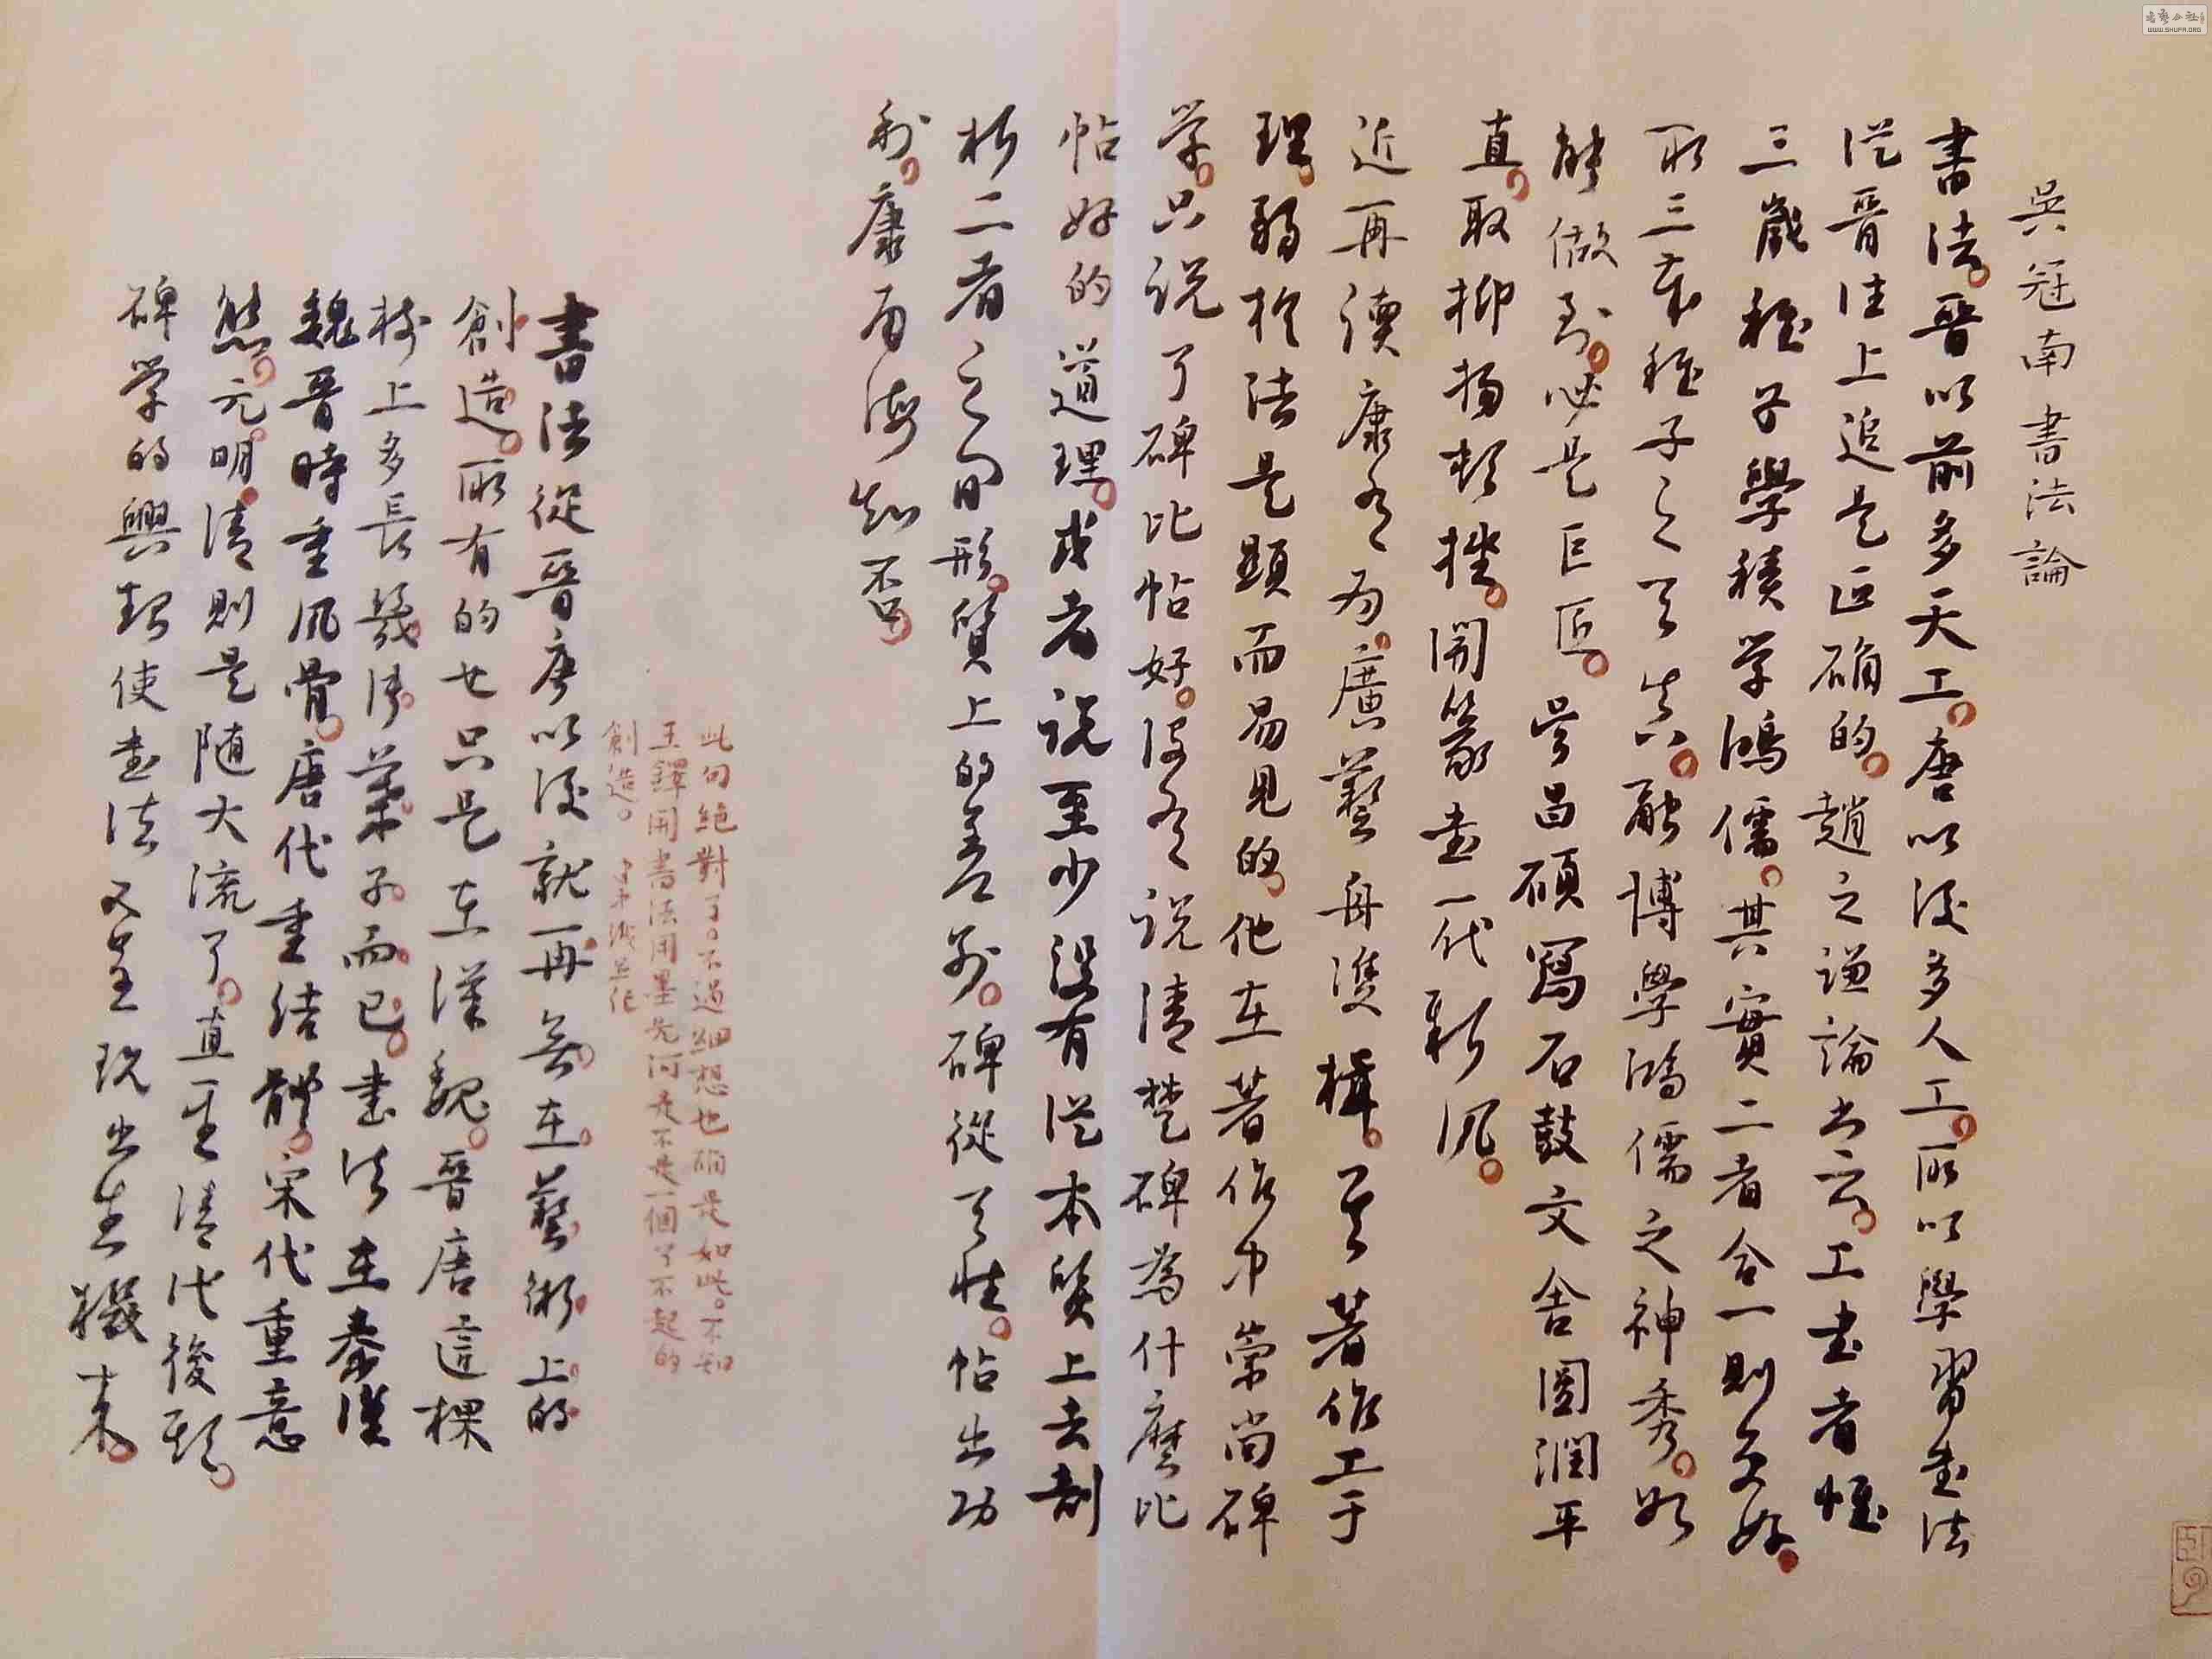 吳冠南書法論
書法。晉以前多天工。唐以後多人工。所以學習書法
從晉往上追是正确的。趙之谦論書云。工書者惟
三歲稚子學積学鴻儒。其實二者合一則更好。
取三歲稚子之天真。融博學鴻儒之神秀。如
能做到。必是巨匠。吴昌碩寫石鼓文舍圆潤平
直。取抑扬頓挫。開篆書一代新风。
近再讀康有为。廣藝舟雙楫。其著作工于
理。弱於法是顕而易見的。他在著作中崇尚碑
学。只说了碑比帖好。沒有说清楚碑為什麽比
帖好的道理。或者说至少没有從本質上去剖
析二者之間形。質上的差别。碑從天性。帖出功
利。康南海知否。
此句絕對了。不過細想也确是如此。不知
王鐸開書法用墨先河是不是一個了不起的
創造。
書法從晉唐以後就再無在藝術上的
創造。所有的也只是在漢魏。晉唐這棵
樹上多長幾片葉子而已。書法在秦漢
魏晉時重风骨。唐代重结體。宋代重意
態。元。明。清則是随大流了。直至清代後期。
碑学的興起使書法又呈现出生機来。